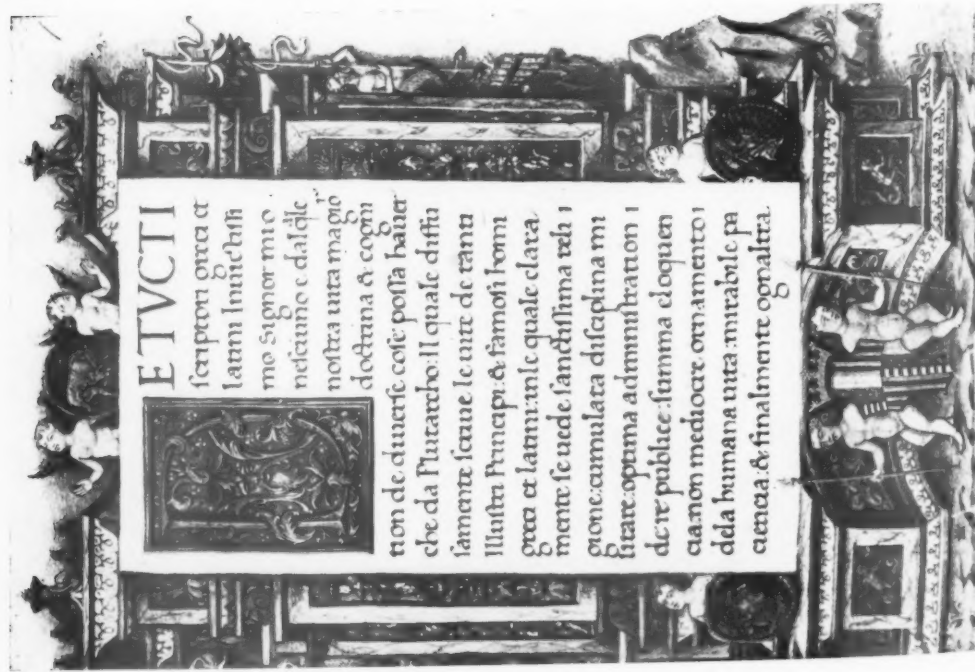 ETVCTI
scriptori greci et
latini Inuictissi
mo Signor mio
nesciuno e dalq̃le
nostra uita magior
doctrina & cogni
tion de diuerse cose: possa hauer
che da Plutarcho: Il quale diffu
samente scriue le uite de tanti
Illustri Principi: & famosi homi
greci et latini: in le quale clara
mente se uede. sanctissima reli
gione: cumulata disciplina mi
litare: optima administration
de re publice: summa eloquen
cia. non mediocre ornamento
dela humana uita: mirabile pa
ciencia. & finalmente ogni altra.